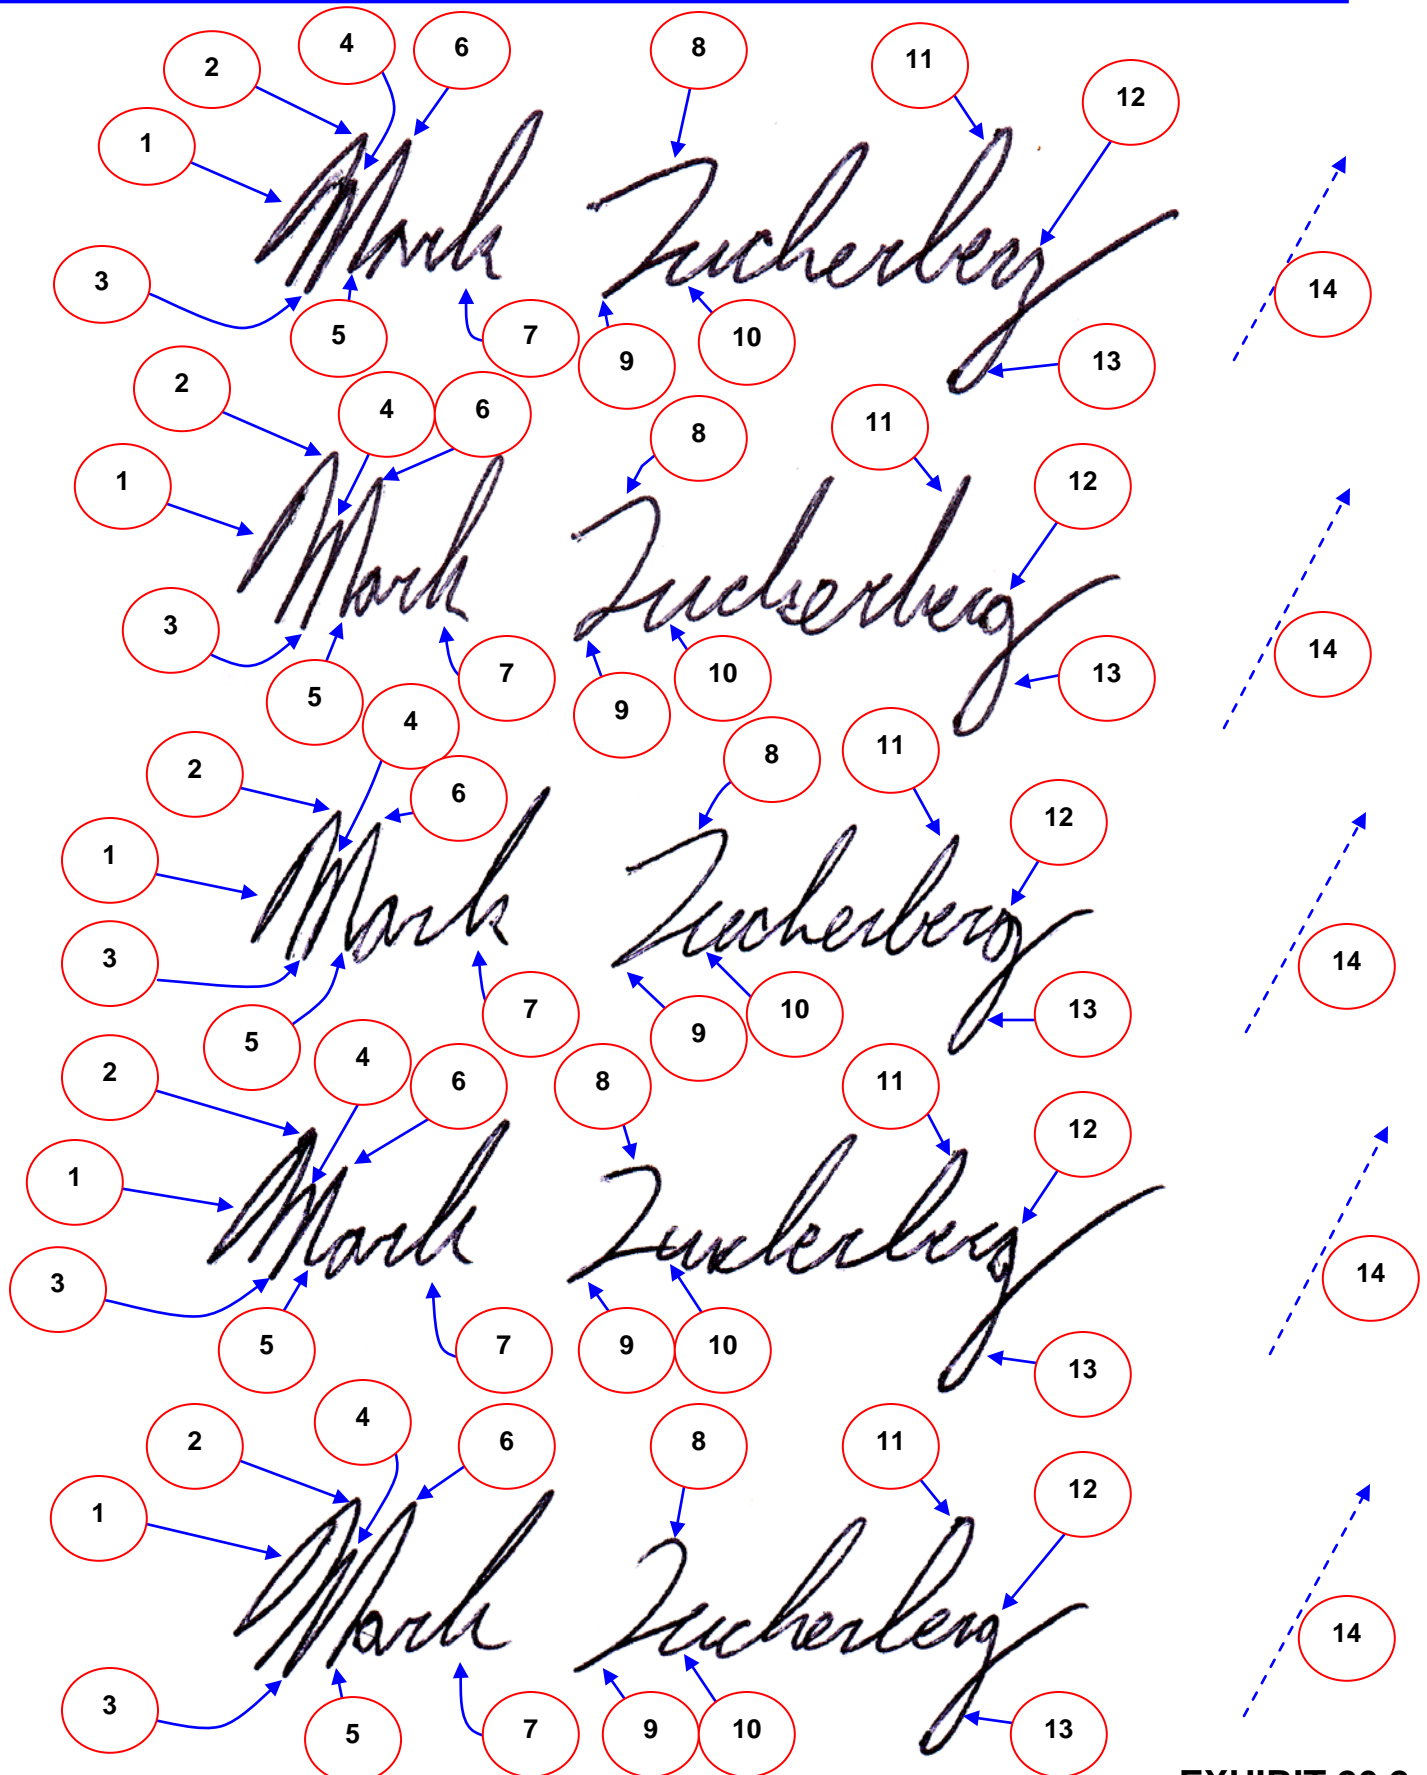 4 6 8 11
2 12
1
Mark Zuckerberg
3 14
5 7 9 10 13
2 4 6 8 11
1 12
Mark Zuckerberg
3 14
5 7 9 10 13
4 8 11
2 6 12
1
Mark Zuckerberg
3 14
5 7 9 10 13
2 4 6 8 11
1 12
Mark Zuckerberg
3 14
5 7 9 10 13
4
2 6 8 11
1 12
Mark Zuckerberg
3 14
5 7 9 10 13